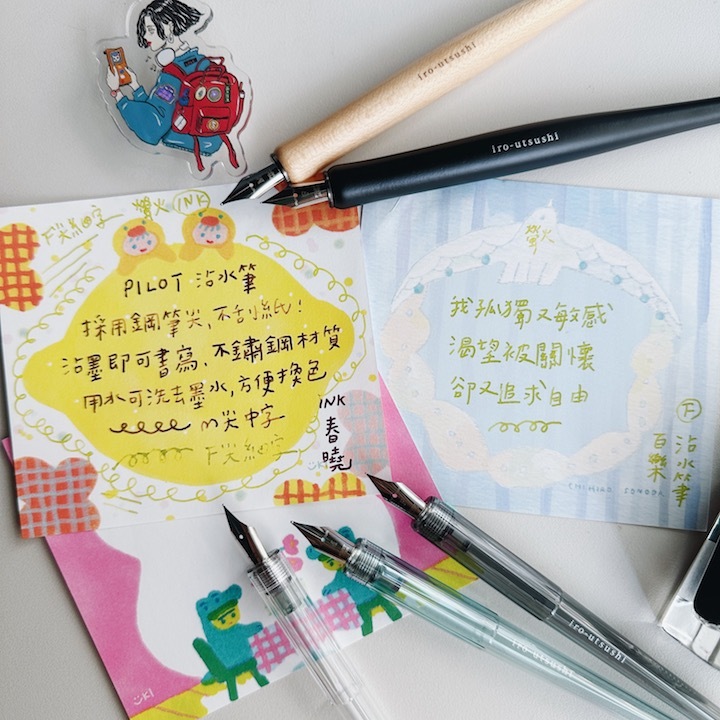 iro-utsushi
iro-utsushi
F尖細字 螢火 INK
PILOT 沾水筆
採用鋼筆尖,不刮紙!
沾墨即可書寫、不鏽鋼材質
用水可洗去墨水,方便換色
m尖中字
F尖細字
INK
春曉
螢火
我孤獨又敏感
渴望被關懷
卻又追求自由
F 沾水筆
百樂
CHIHIRO SONODA
iro-utsushi
iro-utsushi